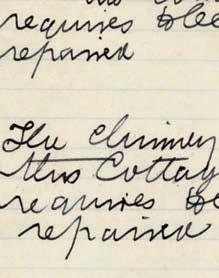 requires to be
repaired
The chimney
this Cottag
requires to be
repaired